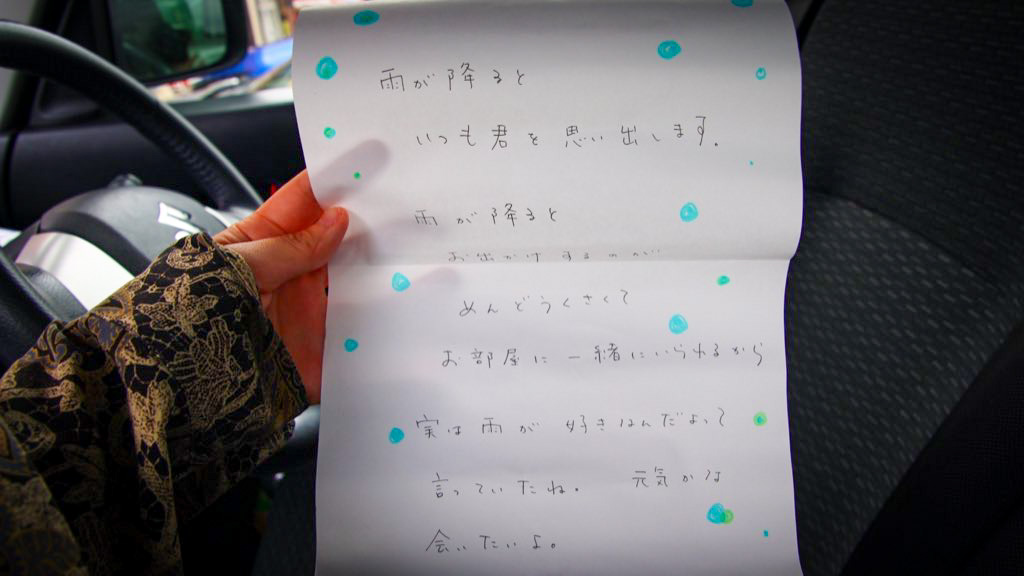 雨が降ると
いつも君を思い出します。
雨が降ると
お出かけするのが
めんどうくさくて
お部屋に一緒にいられるから
実は雨が好きなんだよって
言っていたね。 元気かな
会いたいよ。